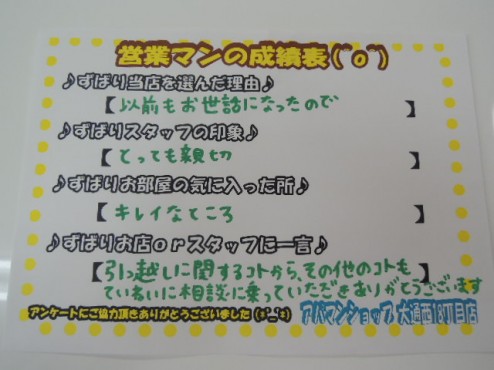 営業マンの成績表(^o^)
♪ずばり当店を選んだ理由♪
【以前もお世話になったので】
♪ずばりスタッフの印象♪
【とっても親切】
♪ずばりお部屋の気に入った所♪
【キレイなところ】
♪ずばりお店orスタッフに一言♪
【引っ越しに関するコトから、その他のコトも】
ていねいに相談に乗っていただきありがとうございます
アンケートにご協力頂きありがとうございました(*^_^*)
アパマンショップ 大通西18丁目店